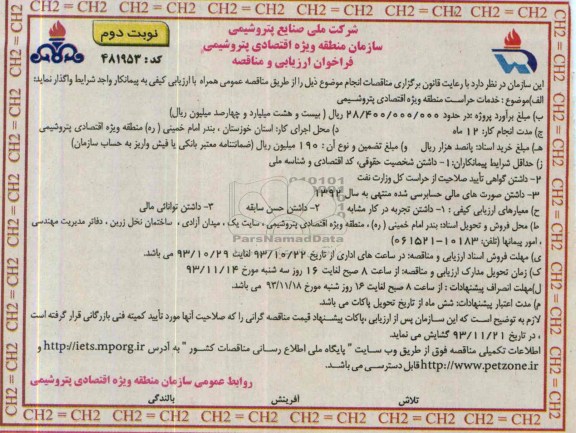 CH2 = CH2 = CH2 = CH2 = CH2 = CH2 = CH2 = CH2 = CH2 = CH2
شرکت ملی صنایع پتروشیمی
سازمان منطقه ویژه اقتصادی پتروشیمی
فراخوان ارزیابی و مناقصه
نوبت دوم
کد : ۴۸۱۹۵۳
این سازمان در نظر دارد با رعایت قانون برگزاری مناقصات انجام موضوع ذیل را از طریق مناقصه عمومی همراه با ارزیابی کیفی به پیمانکار واجد شرایط واگذار نماید:
الف) موضوع : خدمات حراست منطقه ویژه اقتصادی پتروشیمی
ب) مبلغ برآورد پروژه :در حدود ۲۸/۴۰۰/۰۰۰/۰۰۰ ریال ( بیست و هشت میلیارد و چهارصد میلیون ریال)
ج) مدت انجام کار: ۱۲ ماه د) محل اجرای کار: استان خوزستان ، بندر امام خمینی ( ره) منطقه ویژه اقتصادی پتروشیمی
هـ) مبلغ خرید اسناد: پانصد هزار ریال و) مبلغ تضمین و نوع آن : ۱۹۰ میلیون ریال (ضمانتنامه معتبر بانکی یا فیش واریز به حساب سازمان)
ز) حداقل شرایط پیمانکاران: ۱- داشتن شخصیت حقوقی، کد اقتصادی و شناسه ملی
۲- داشتن گواهی تأیید صلاحیت از حراست کل وزارت نفت
۳- داشتن صورت های مالی حسابرسی شده منتهی به سال ۱۳۹۲
ح) معیارهای ارزیابی کیفی : ۱- داشتن تجربه در کار مشابه ۲- داشتن حسن سابقه ۳- داشتن توانائی مالی
ParsNamadData
ط) محل فروش و تحویل اسناد: بندر امام خمینی ( ره) ، منطقه ویژه اقتصادی پتروشیمی ، سایت یک ، میدان آزادی ، ساختمان نخل زرین ، دفاتر مدیریت مهندسی
، امور پیمانها (تلفن: ۱۰۱۸۳-۰۶۱۵۲۱)
ی) مهلت فروش اسناد ارزیابی و مناقصه: در ساعت های اداری از تاریخ ۹۳/۱۰/۲۲ لغایت ۹۳/۱۰/۲۹ می باشد.
ک) زمان تحویل مدارک ارزیابی و مناقصه: از ساعت ۸ صبح لغایت ۱۶ روز سه شنبه مورخ ۹۳/۱۱/۱۴
ل)مهلت انصراف پیشنهادات : از ساعت ۸ صبح لغایت ۱۶ روز شنبه مورخ ۹۳/۱۱/۱۸ می باشد.
م) مدت اعتبار پیشنهادات: شش ماه از تاریخ تحویل پاکات می باشد.
لازم به توضیح است که این سازمان پس از ارزیابی ،پاکات پیشنهاد قیمت مناقصه گرانی را که صلاحیت آنها مورد تأیید کمیته فنی بازرگانی قرار گرفته است
، در تاریخ ۹۳/۱۱/۲۱ گشایش می نماید.
اطلاعات تکمیلی مناقصه فوق از طریق وب سایت " پایگاه ملی اطلاع رسانی مناقصات کشور " به آدرس http://iets.mporg.ir و
http://www.petzone.ir قابل دسترسی می باشد.
روابط عمومی سازمان منطقه ویژه اقتصادی پتروشیمی
تلاش آفرینش بالندگی
CH2 = CH2 = CH2 = CH2 = CH2 = CH2 = CH2 = CH2 = CH2 = CH2